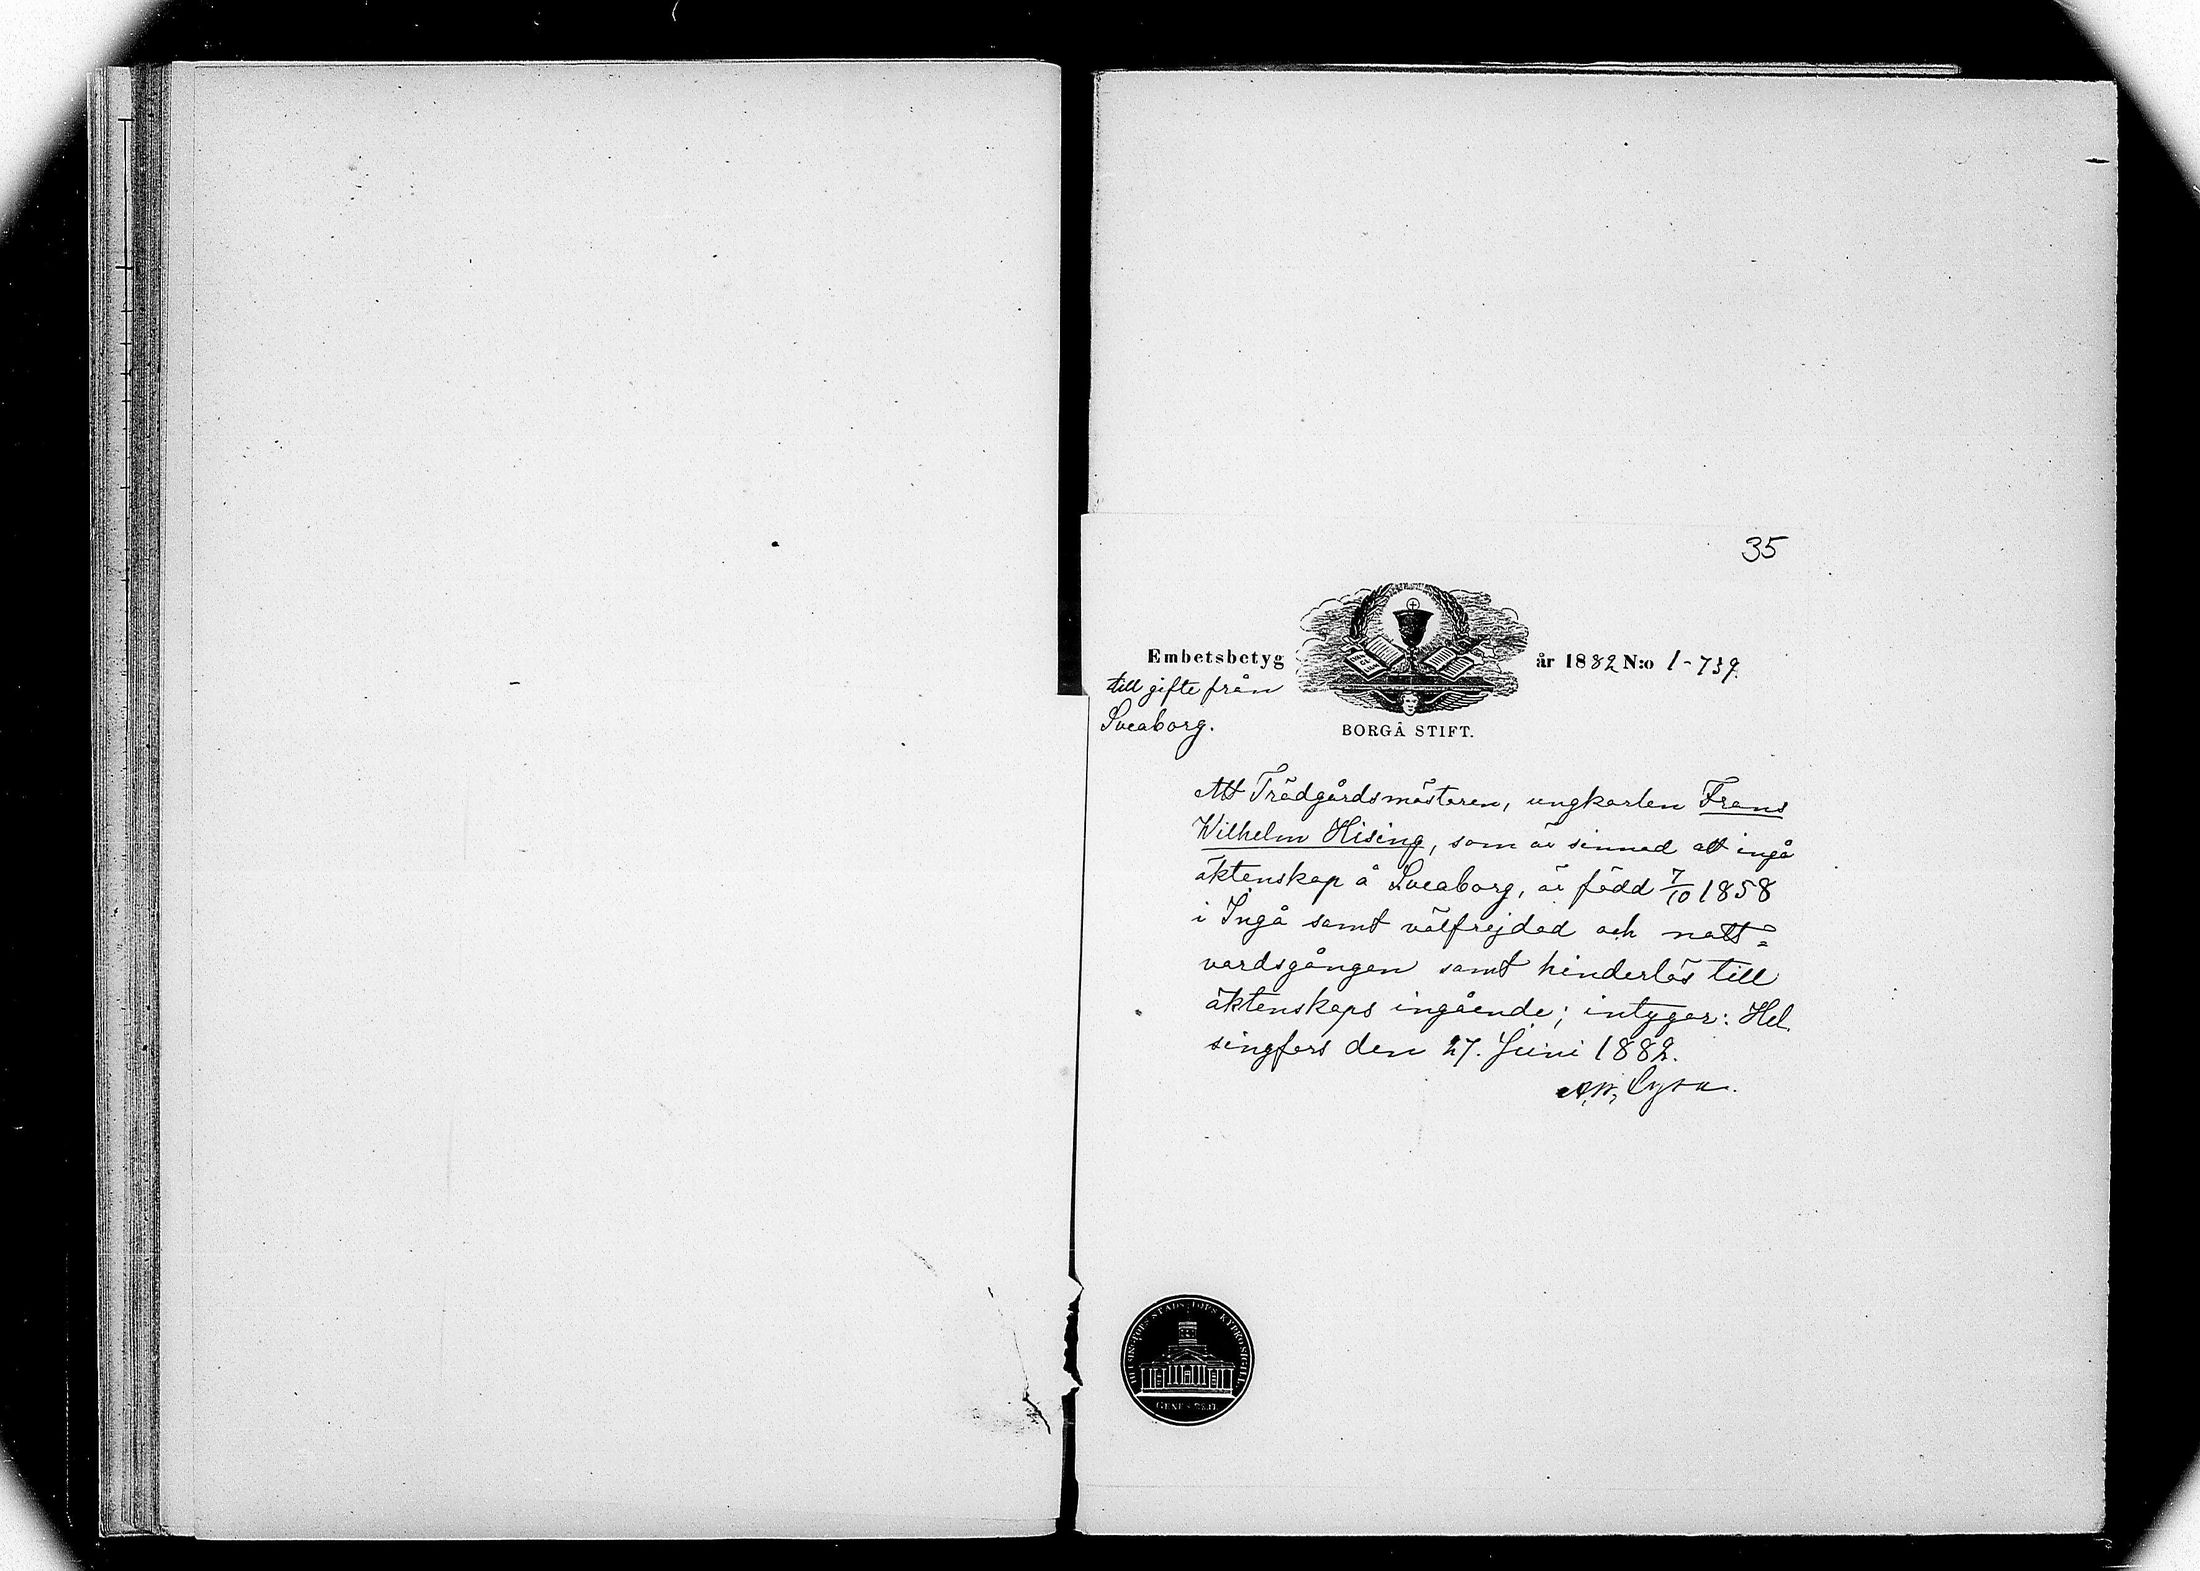 35
Embetsbetyg år 1882 N:o 1-739.
till gifte från
Sveaborg.
BORGÅ STIFT.
Att Trädgårdsmästaren, ungkarlen Frans
Wilhelm Hising, som är sinnad att ingå
äktenskap å Sveaborg, är född 7/10 1858
i Ingå samt välfrejdad och natt=
vardsgången samt hinderlös till
äktenskaps ingående; intygar: Hel
singfors den 27. Juni 1882.